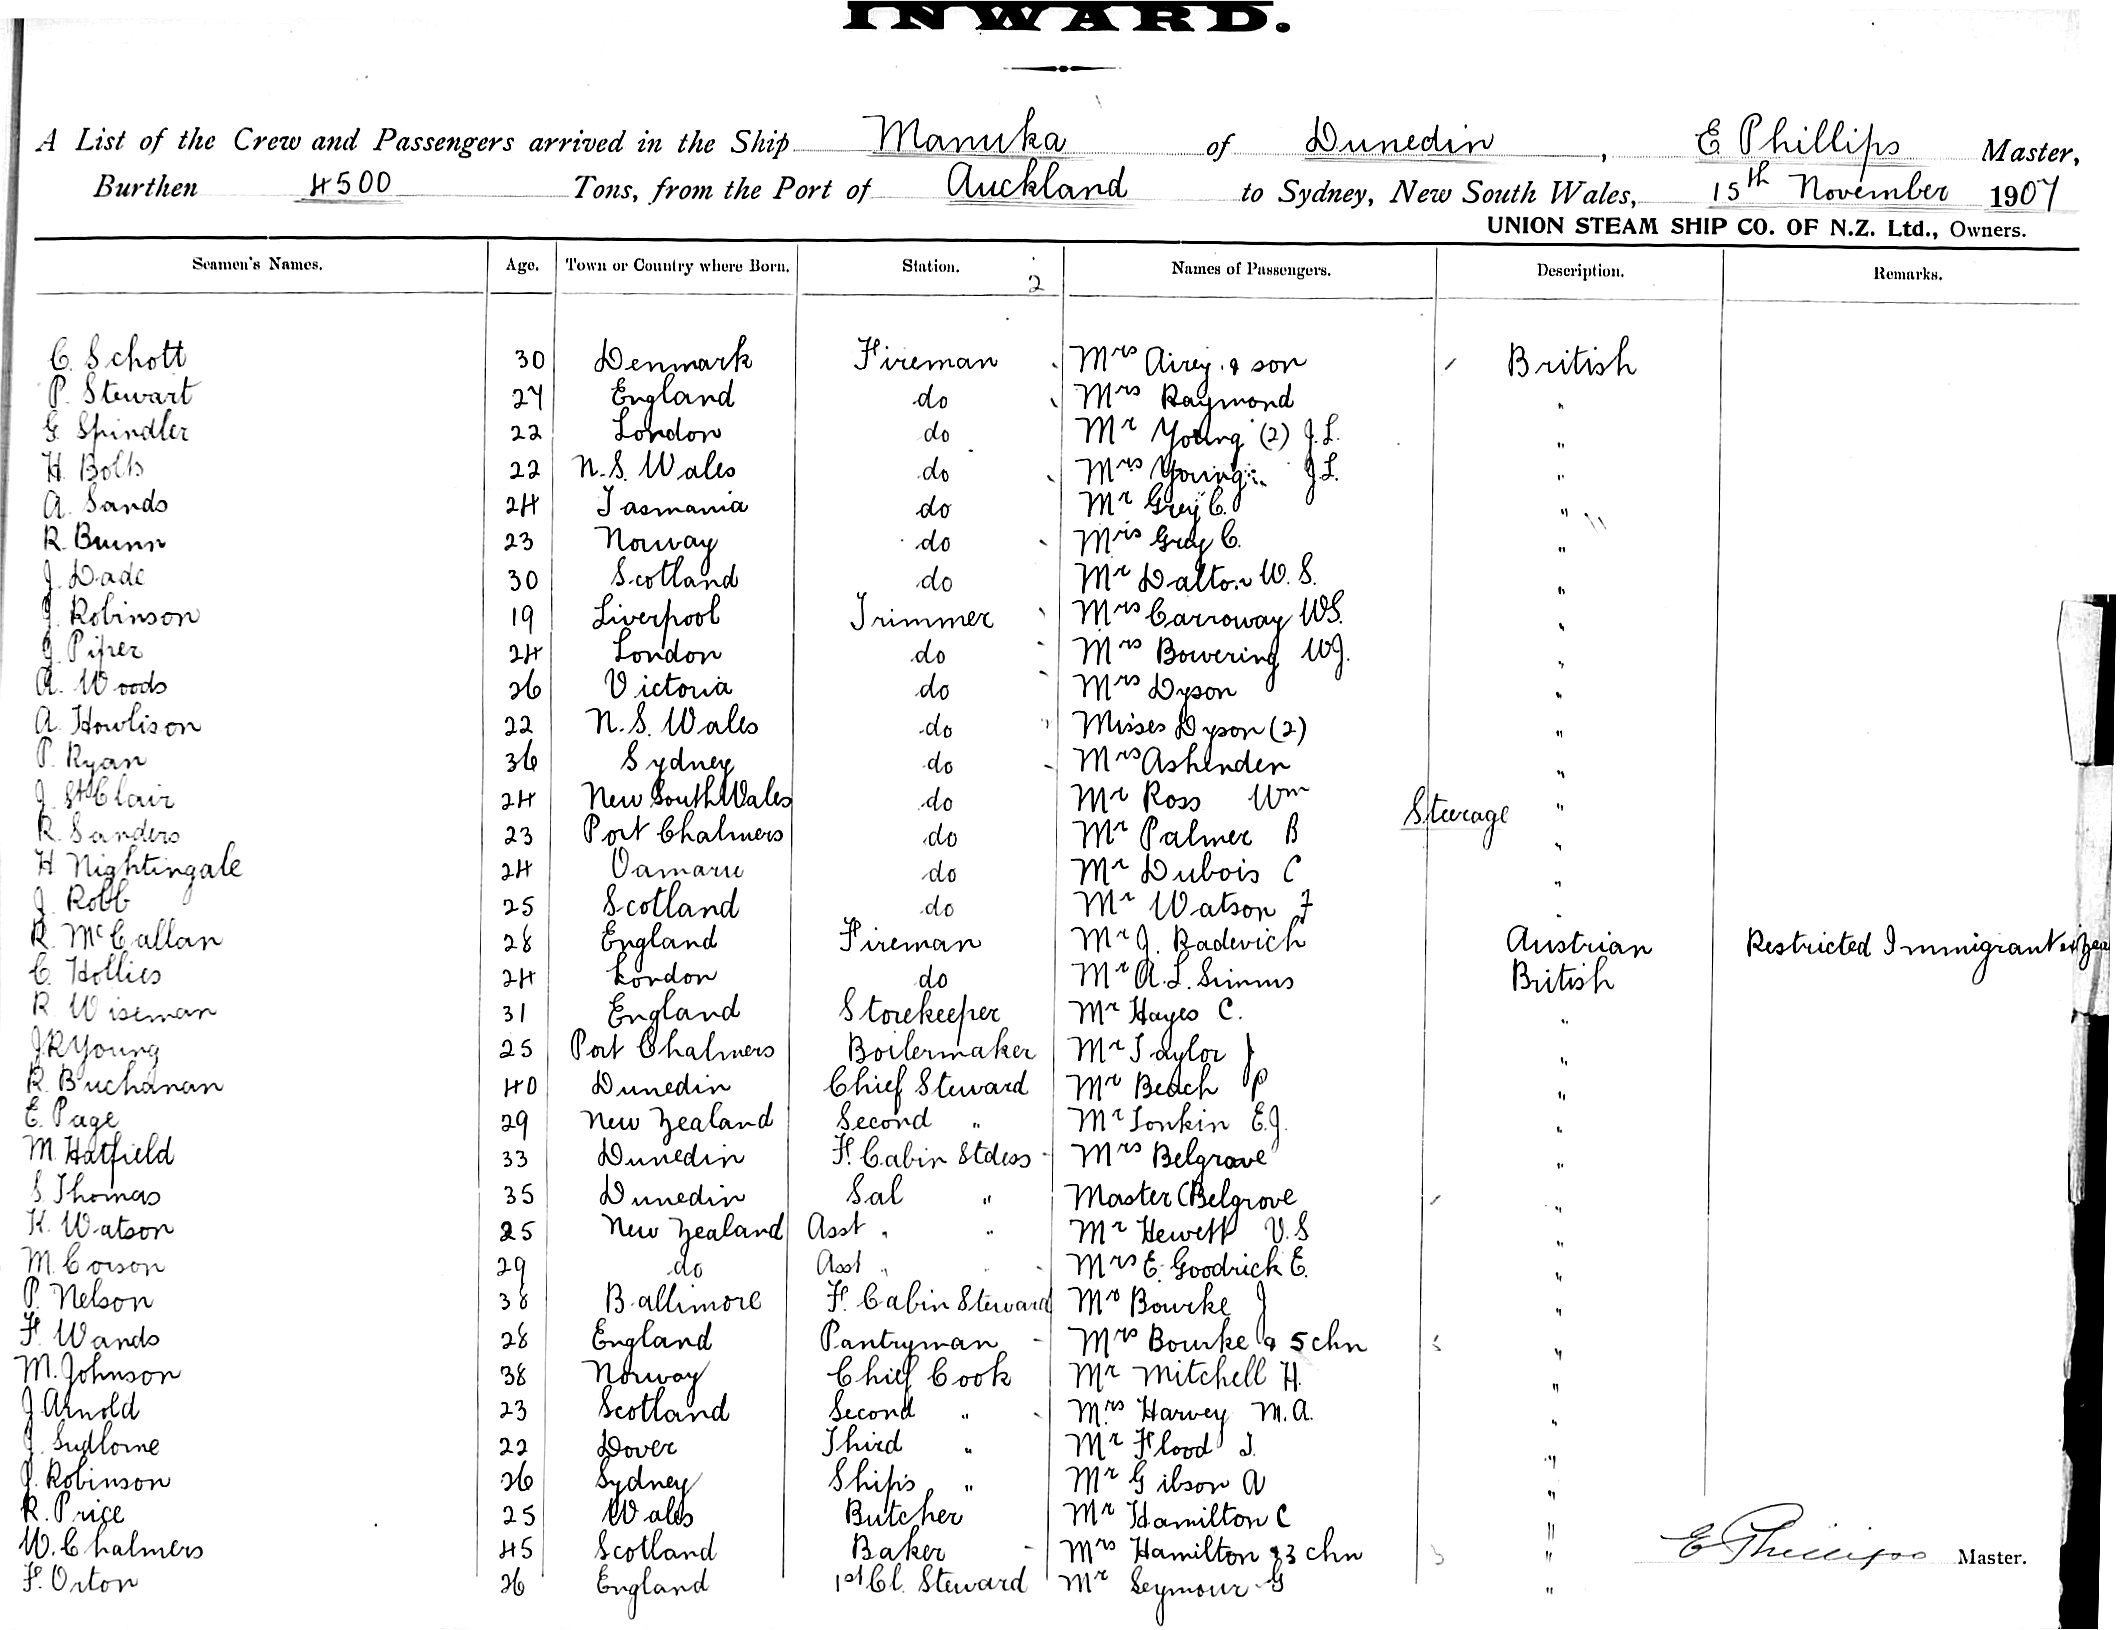 INWARD.
A List of the Crew and Passengers arrived in the Ship Manuka of Dunedin, E Phillips Master,
Burthen 4500 Tons, from the Port of Auckland to Sydney, New South Wales, 15th November 1907
UNION STEAM SHIP CO. OF N.Z. Ltd., Owners.
Seamen's Names. Age. Town or Country where Born. Station. 2 Names of Passengers. Description. Remarks.
C. Schott 30 Denmark Fireman Mrs Airey & son British
P. Stewart 27 England do Mrs Raymond "
G. Spindler 22 London do Mr Young (2) J.L. "
H. Bolts 22 N.S. Wales do Mrs Young J.L. "
A. Sands 24 Tasmania do Mr Grey C. "
R. Bunn 23 Norway do Mrs Grey C. "
J. Dade 30 Scotland do Mr Dalton W.S. "
J. Robinson 19 Liverpool Trimmer Mrs Carroway WS. "
J. Piper 24 London do Mrs Bowering WJ. "
A. Woods 26 Victoria do Mrs Dyson "
A. Howlison 22 N.S. Wales do Misses Dyson (2) "
P. Ryan 36 Sydney do Mrs Ashenden "
J. St Clair 24 New South Wales do Mr Ross Wm Steerage "
R. Sanders 23 Port Chalmers do Mr Palmer B "
H Nightingale 24 Oamaru do Mr Dubois C "
J. Robb 25 Scotland do Mr Watson F "
R. McCallan 28 England Fireman Mr J. Radevich Austrian Restricted Immigrant
C. Hollies 24 London do Mr A.L. Simms British
R. Wiseman 31 England Storekeeper Mr Hayes C. "
J.R Young 25 Port Chalmers Boilermaker Mr Taylor J "
R. Buchanan 40 Dunedin Chief Steward Mr Beach P "
E. Page 29 New Zealand Second " Mr Tonkin E.J. "
M. Hatfield 33 Dunedin F. Cabin Stdess Mrs Belgrave "
S. Thomas 35 Dunedin Sal " Master (Belgrove "
K. Watson 25 New Zealand Asst " " Mr Hewett V.S "
M. Corson 29 do Asst " " Mrs E. Goodrick E. "
P. Nelson 38 Baltimore F. Cabin Steward Mr Bourke J "
F. Wands 28 England Pantryman Mrs Bourke & 5 chn "
M. Johnson 38 Norway Chief Cook Mr Mitchell H. "
J. Arnold 23 Scotland Second " Mrs Harvey M.A. "
J. 22 Dover Third " Mr Flood J. "
J. Robinson 26 Sydney Ships " Mr Gibson A "
R. Price 25 Wales Butcher Mr Hamilton C "
W. Chalmers 45 Scotland Baker Mrs Hamilton & 3 chn " E Phillips Master.
F. Orton 26 England 1st Cl. Steward Mr Seymour G "